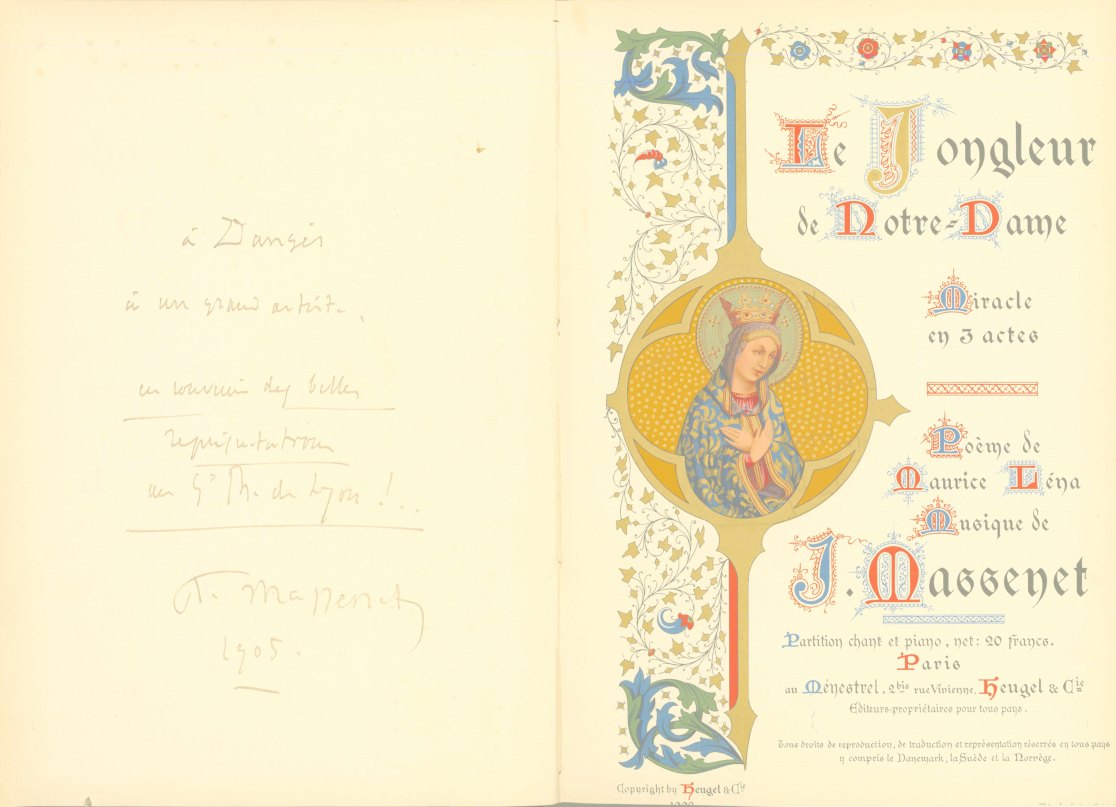 à Dangès
à un grand artiste.
en souvenir des belles
représentations
au Gd Th. de Lyon !..
J. Massenet
1905.
Le Jongleur
de Notre-Dame
Miracle
en 3 actes
Poème de
Maurice Léna
Musique de
J. Massenet
Partition chant et piano, net: 20 francs.
Paris
au Ménestrel, 2bis rue Vivienne, Heugel & Cie
Editeurs-propriétaires pour tous pays.
Tous droits de reproduction, de traduction et représentation réservés en tous pays
y compris le Danemark, la Suède et la Norvège.
Copyright by Heugel & Cie